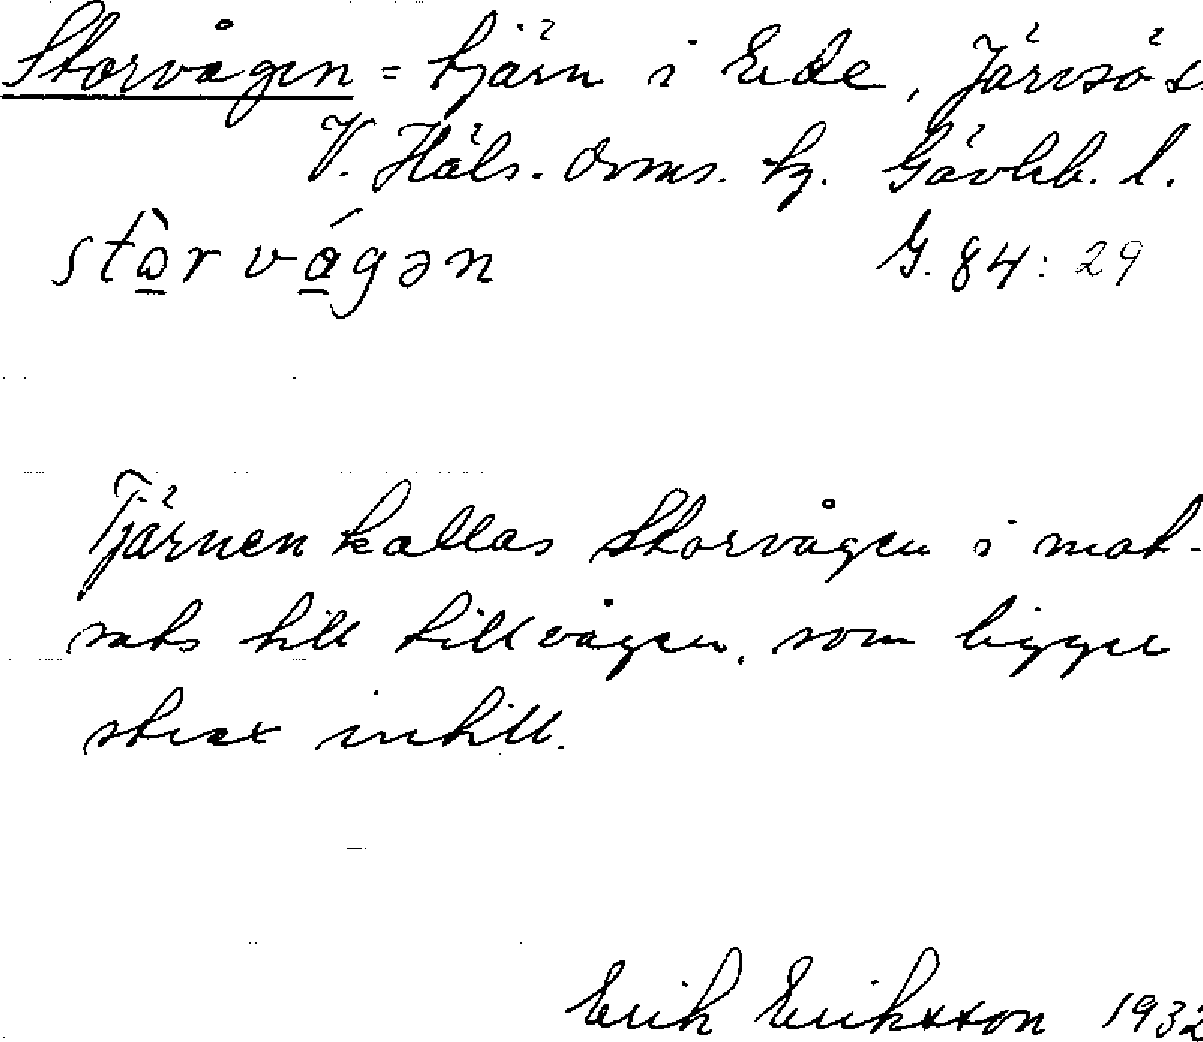 Storvågen = tjärn i Ede, Järvsö s
V. Häls. doms. tg. Gävleb. l.
stòr vágən G. 84: 29
Tjärnen kallas Storvågen i mot-
sats till Lillvågen, som ligger
strax intill.
Erik Eriksson 1932